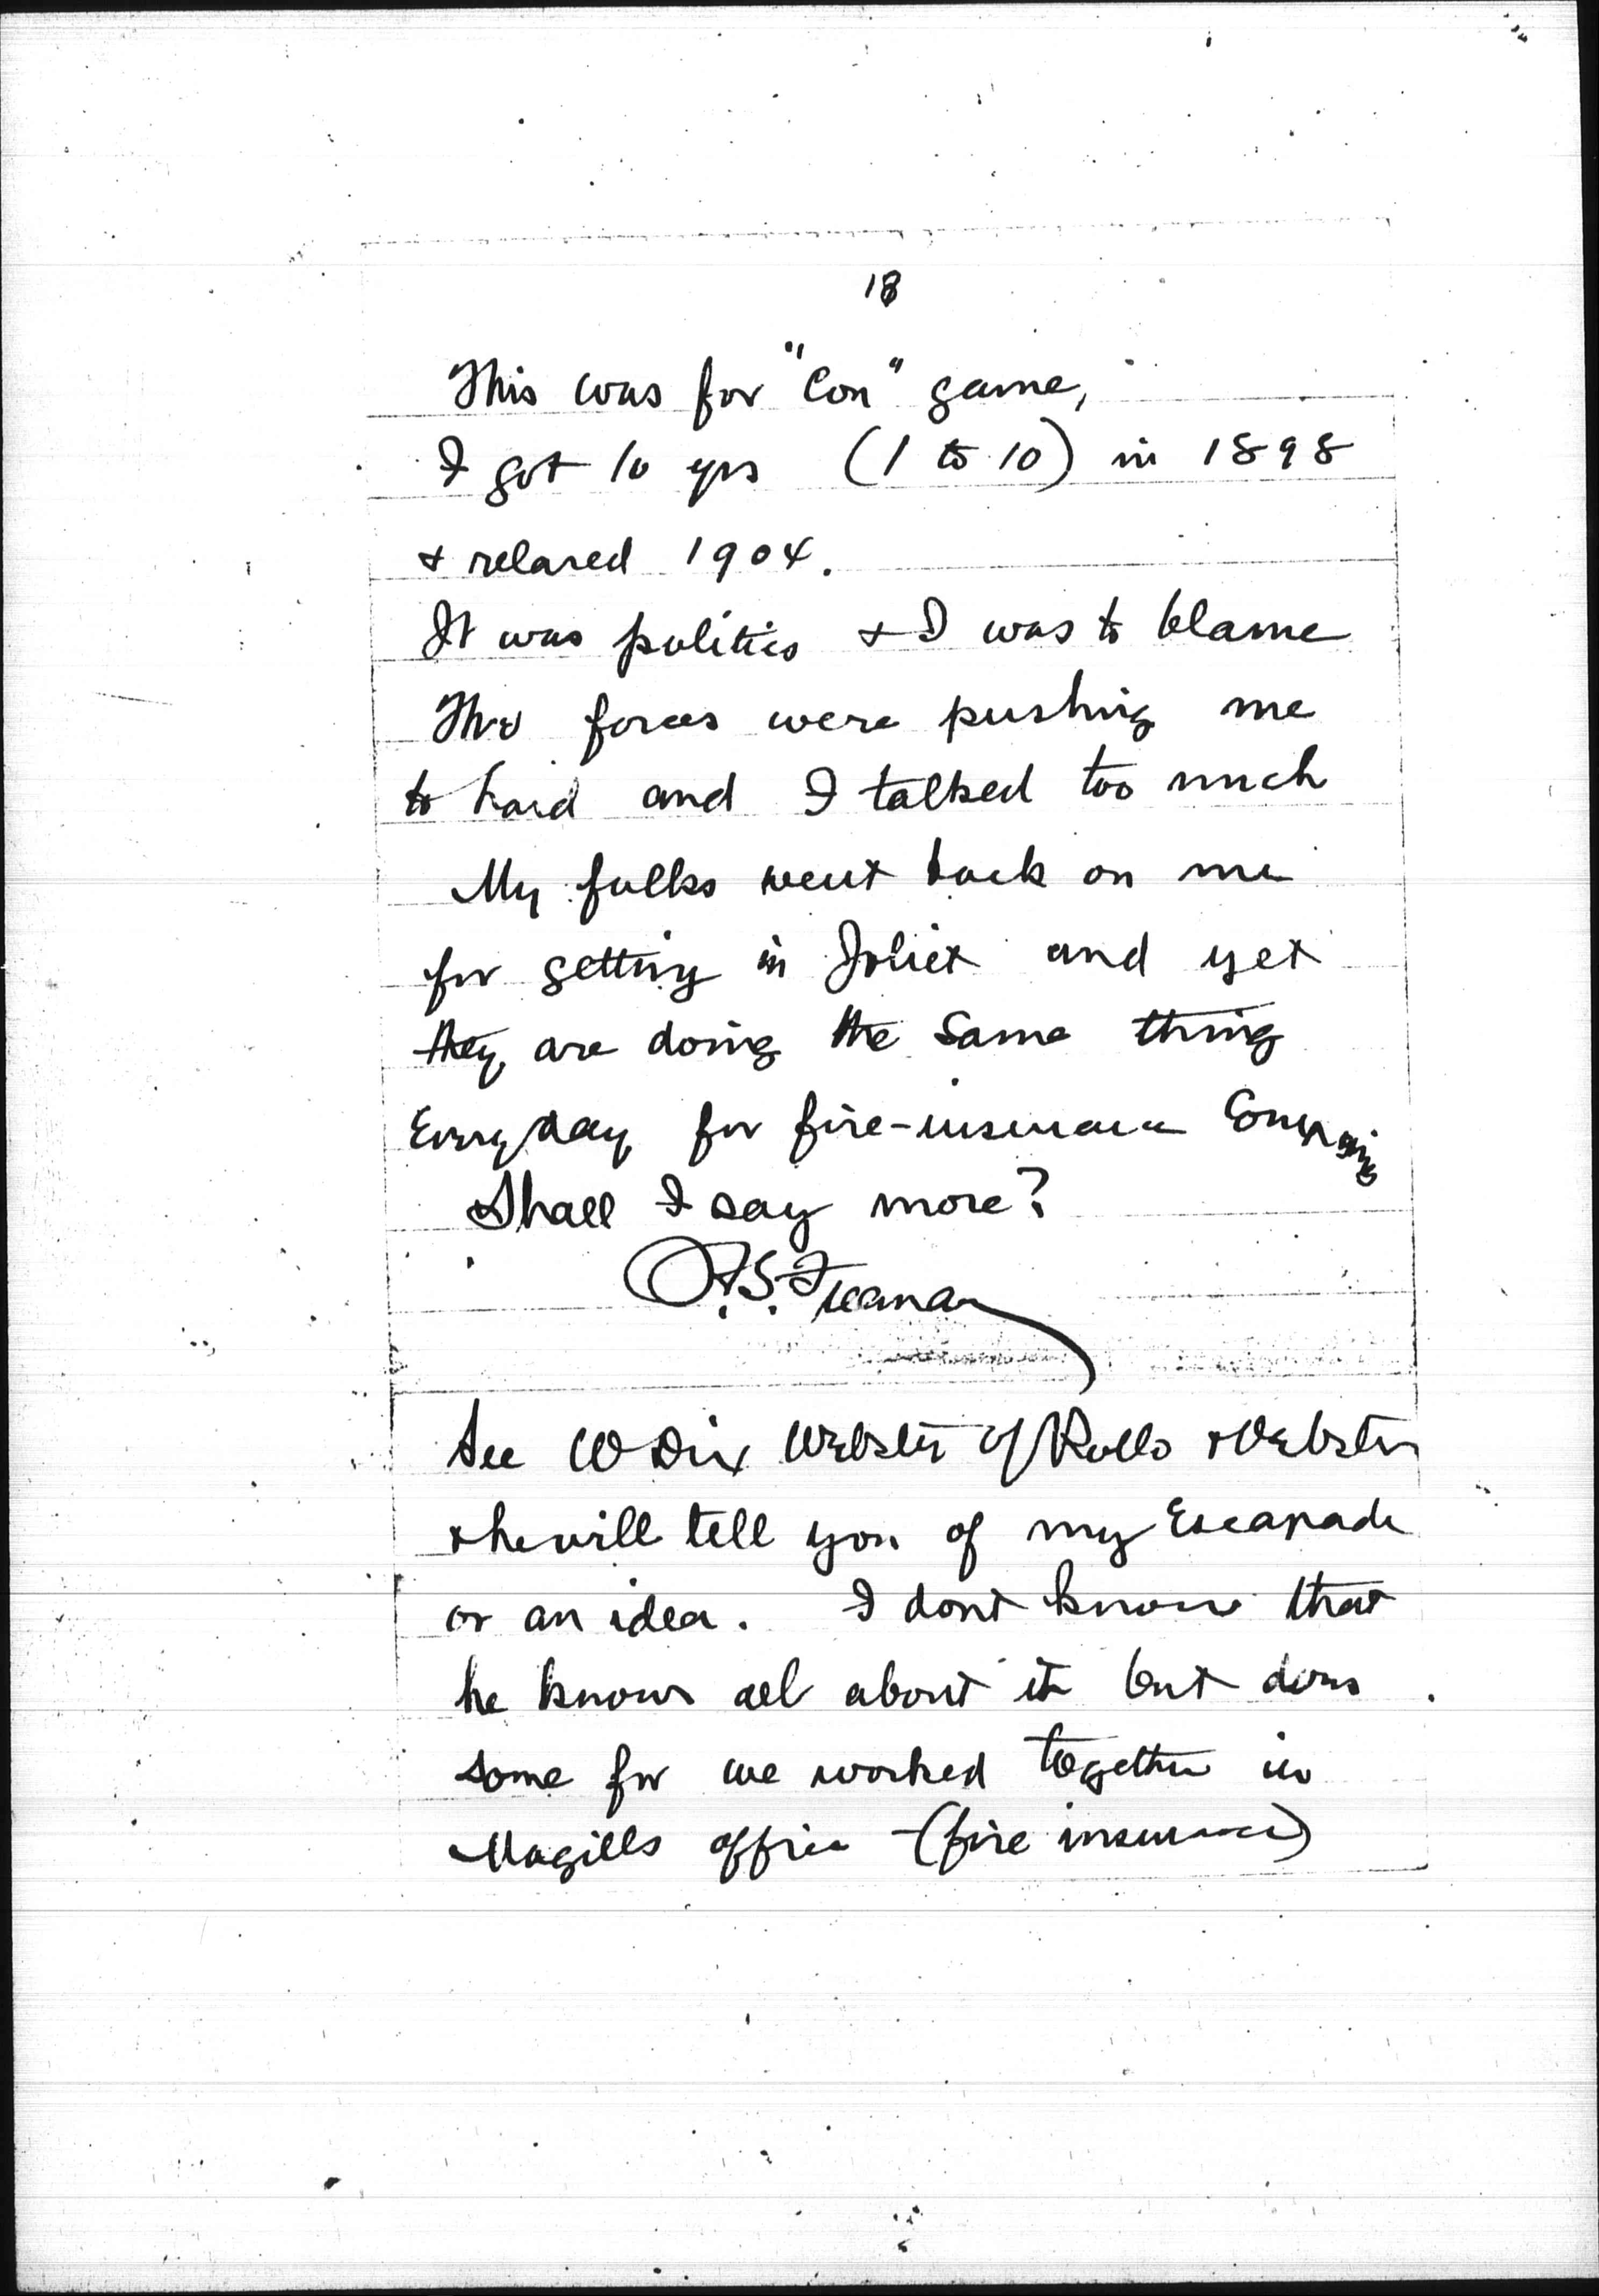 18
This was for "Con" game,
I got 10 yrs (1 to 10) in 1898
& relased 1904.
It was politics & I was to blame
The forces were pushing me
to hard and I talked too much
My folks went back on me
for getting in Joliet and yet
they are doing the same thing
Every day for fire-insurance Companies
Shall I say more?
F.S. Freeman
See W Dix Webster of Rollo & Webster
& he will tell you of my Escapade
or an idea. I dont know that
he knows all about it but does
some for we worked together in
Magills office - (fire insurance)